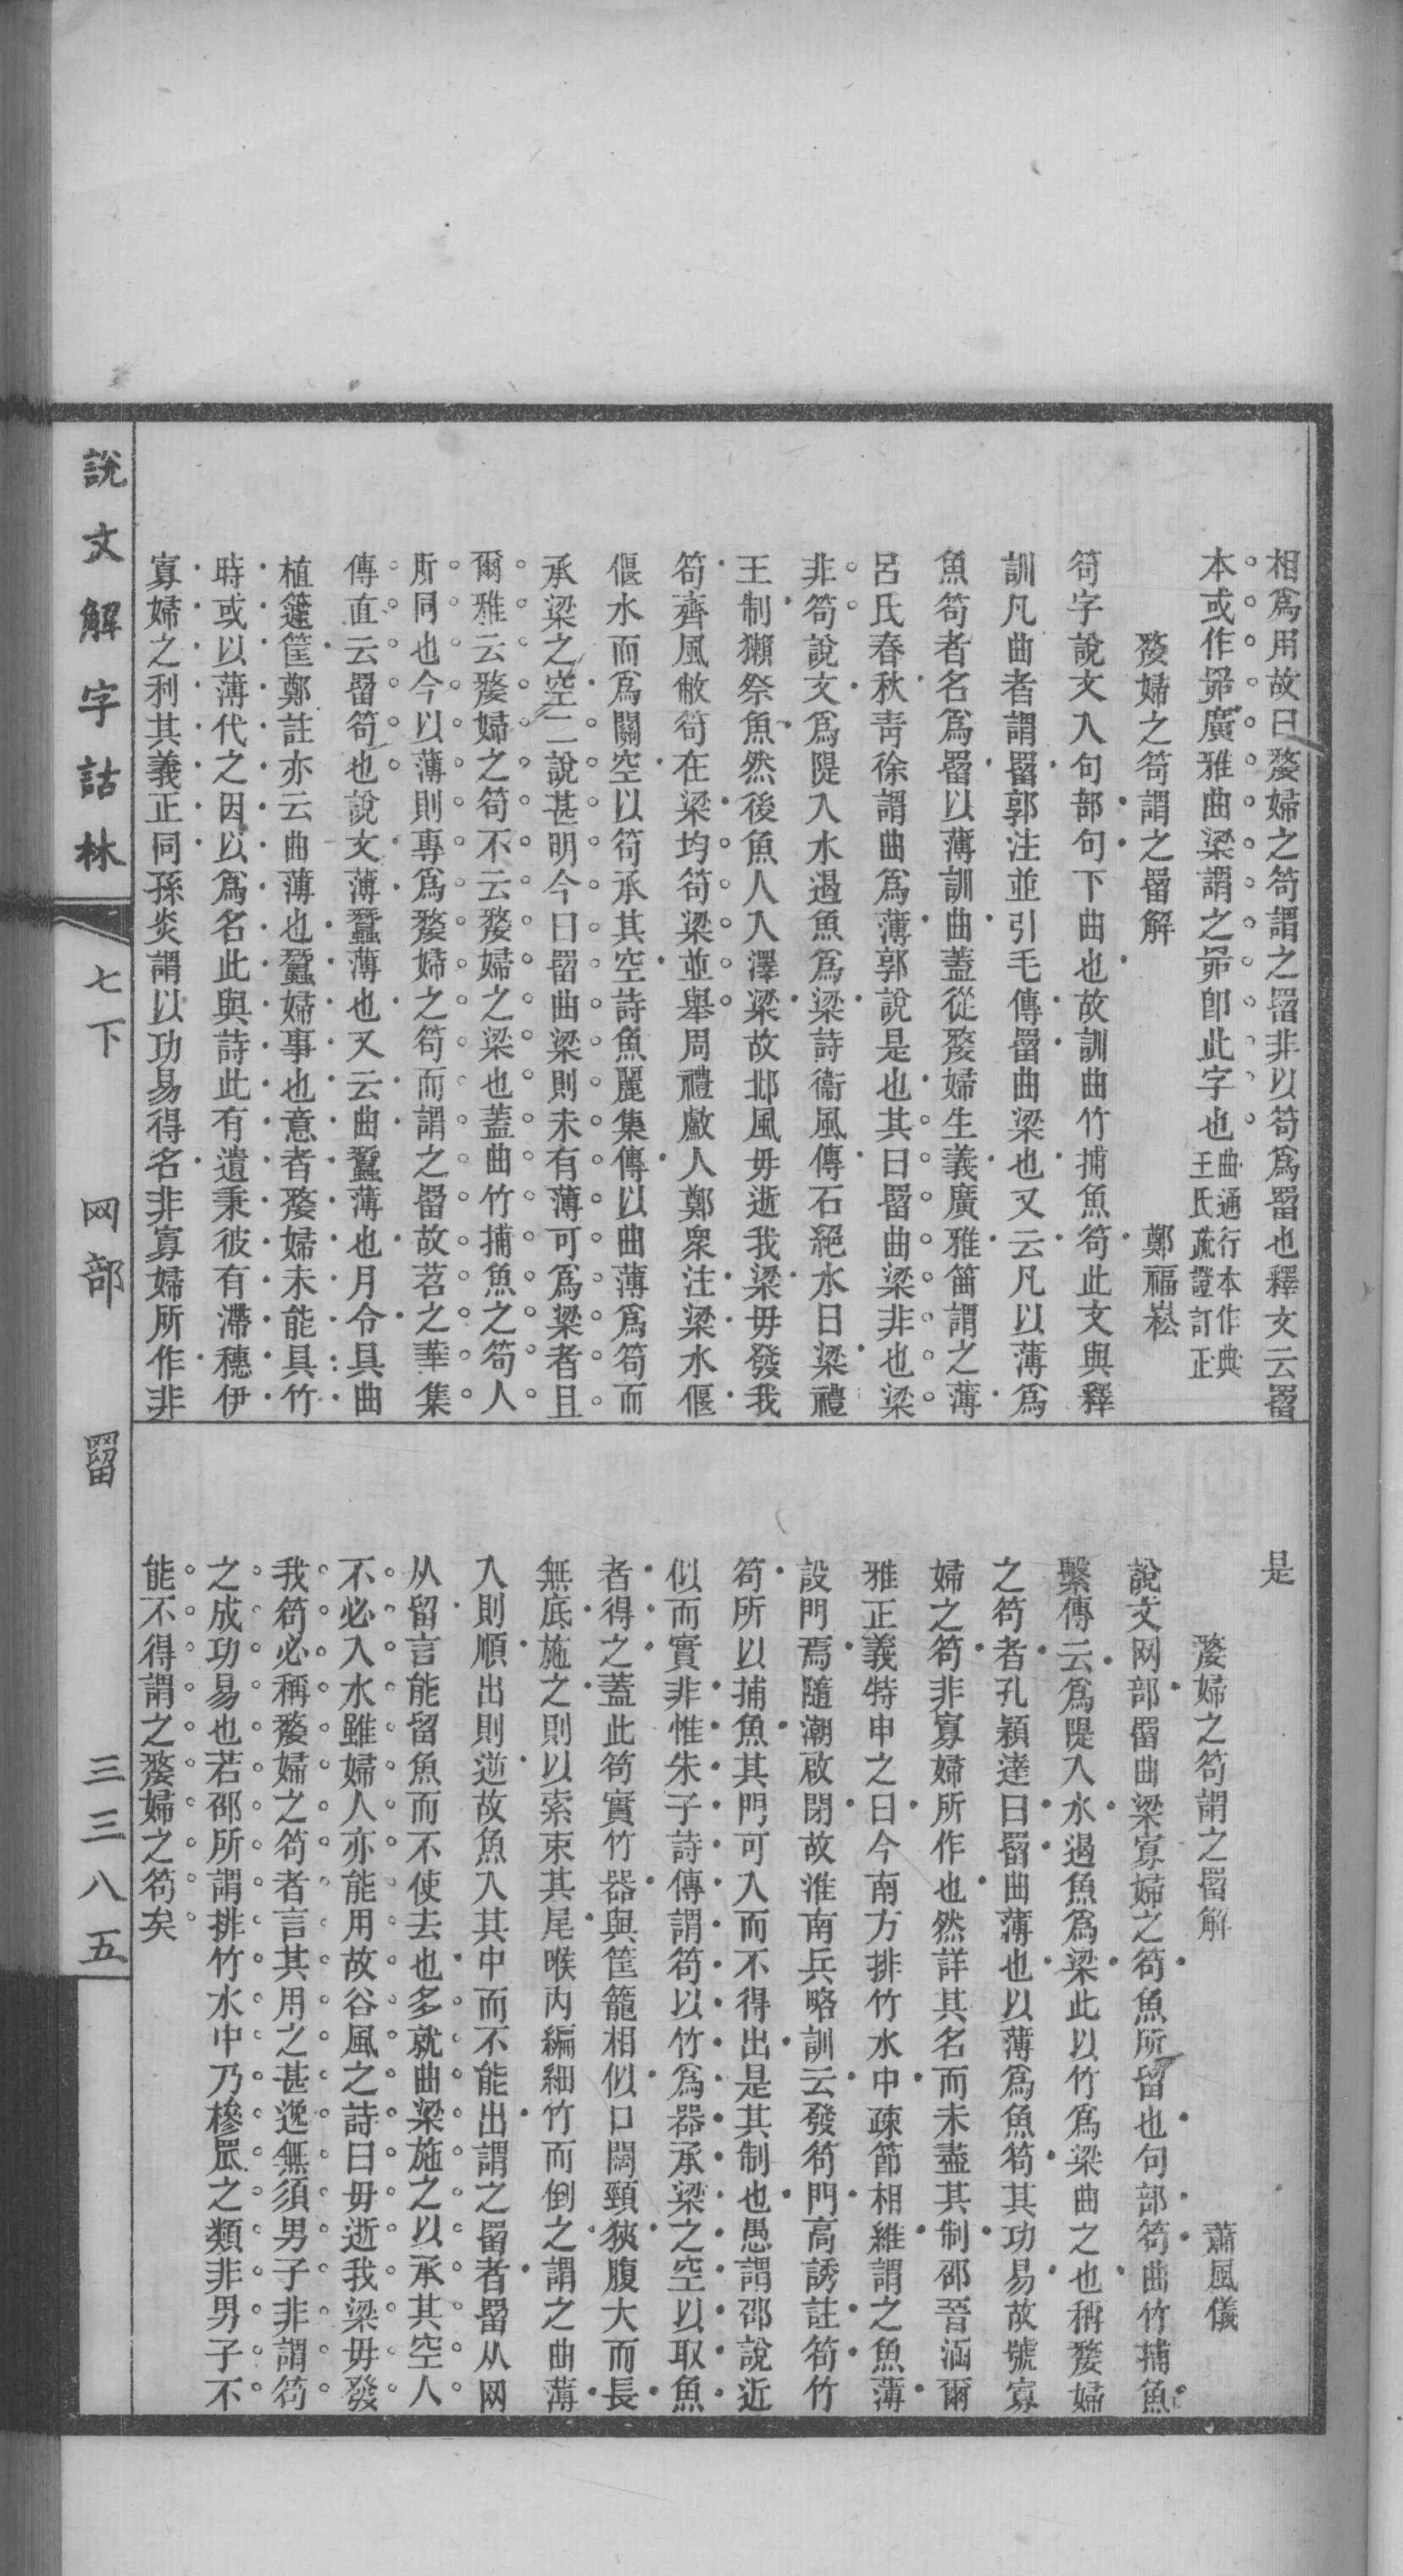 相爲用故曰嫠婦之笱謂之罶非以笱爲罶也釋文云罶
本或作罤廣雅曲梁謂之罤卽此字也曲通行本作典王氏疏證訂正
嫠婦之笱謂之罶解 鄭福崧
笱字說文入句部句下曲也故訓曲竹捕魚笱此文與釋
訓凡曲者謂罶郭注並引毛傳罶曲梁也又云凡以薄爲
魚笱者名爲罶以薄訓曲蓋從嫠婦生義廣雅笛謂之薄
呂氏春秋靑徐謂曲爲薄郭說是也其曰罶曲梁非也梁
非笱說文爲隄入水遏魚爲梁詩衞風傳石絕水曰梁禮
王制獺祭魚然後魚人入澤梁故邶風毋逝我梁毋發我
笱齊風敝笱在梁均笱梁並舉周禮䱷人鄭衆注梁水偃
偃水而爲關空以笱承其空詩魚麗集傳以曲薄爲笱而
承梁之空二說甚明今曰罶曲梁則未有薄可爲梁者且
爾雅云嫠婦之笱不云嫠婦之梁也蓋曲竹捕魚之笱人
所同也今以薄則專爲嫠婦之笱而謂之罶故苕之華集
傳直云罶笱也說文薄蠶薄也又云曲蠶薄也月令具曲
植籧筐鄭註亦云曲薄也蠶婦事也意者嫠婦未能具竹
時或以薄代之因以爲名此與詩此有遺秉彼有滯穗伊
寡婦之利其義正同孫炎謂以功易得名非寡婦所作非
是
嫠婦之笱謂之罶解 蕭風儀
說文网部罶曲梁寡婦之笱魚所留也句部笱曲竹捕魚
繫傳云爲隄入水遏魚爲梁此以竹爲梁曲之也稱嫠婦
之笱者孔穎達曰罶曲薄也以薄爲魚笱其功易故號寡
婦之笱非寡婦所作也然詳其名而未盡其制邵晉涵爾
雅正義特申之曰今南方排竹水中疎節相維謂之魚薄
設門焉隨潮啟閉故淮南兵略訓云發笱門高誘註笱竹
笱所以捕魚其門可入而不得出是其制也愚謂邵說近
似而實非惟朱子詩傳謂笱以竹爲器承梁之空以取魚
者得之蓋此笱實竹器與筐籠相似口闊頸狹腹大而長
無底施之則以索束其尾喉內編細竹而倒之謂之曲薄
入則順出則逆故魚入其中而不能出謂之罶者罶从网
从留言能留魚而不使去也多就曲梁施之以承其空人
不必入水雖婦人亦能用故谷風之詩曰毋逝我梁毋發
我笱必稱嫠婦之笱者言其用之甚逸無須男子非謂笱
之成功易也若邵所謂排竹水中乃槮罛之類非男子不
能不得謂之嫠婦之笱矣
說文解字詁林 七下 网部 罶 三三八五